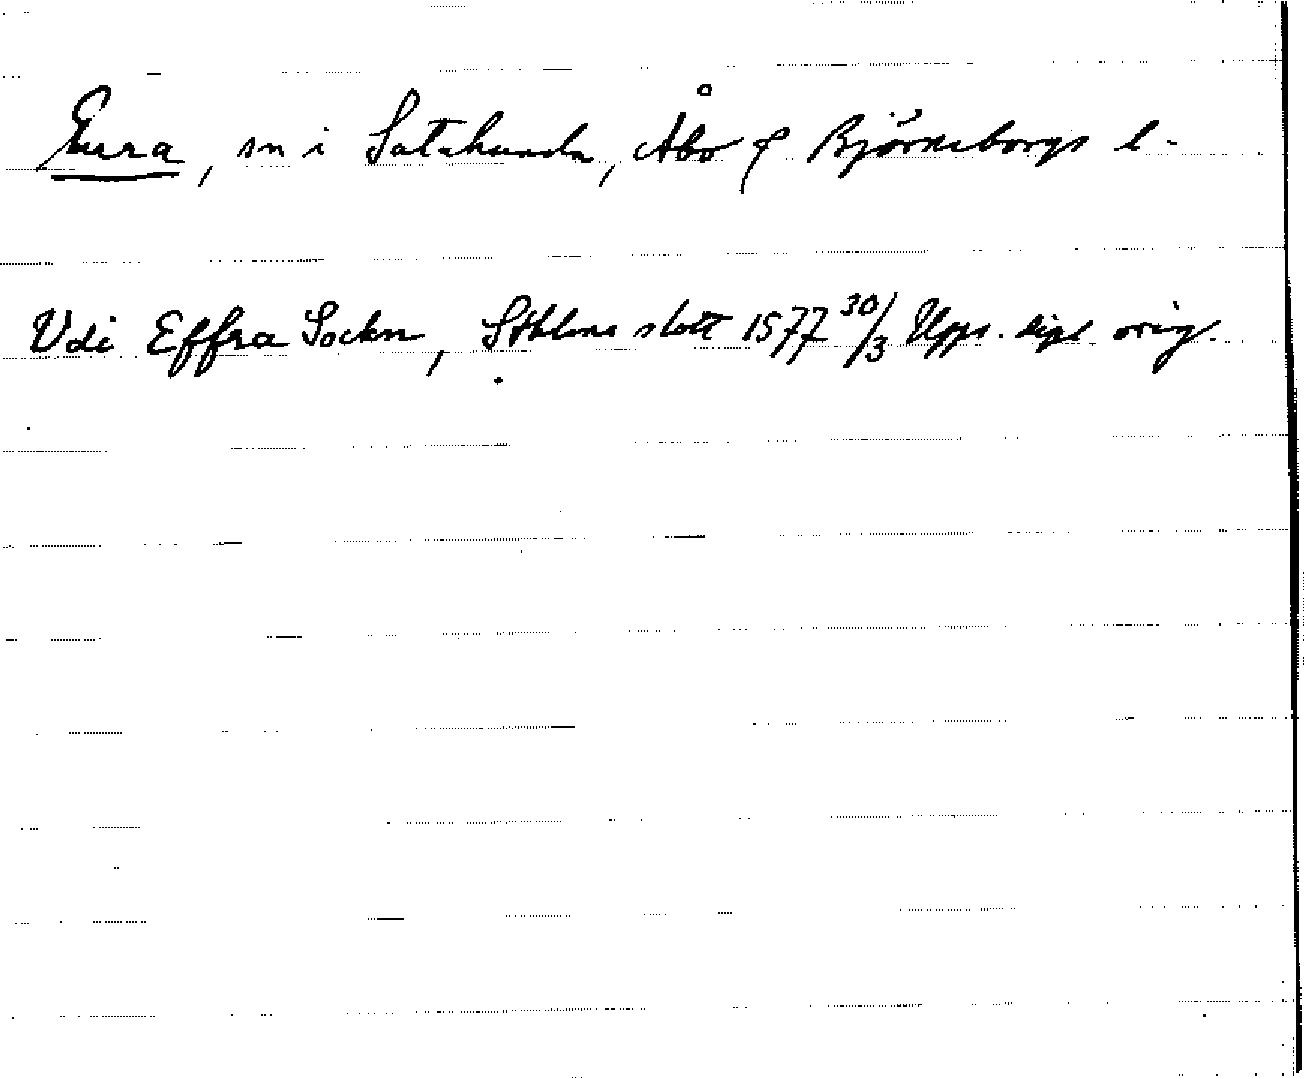 Eura, sn i Satakunda, Åbo & Björneborgs l.
Vdi Effra Sockn, Sthlms slott 1577 30/3 Upps. dipl orig.